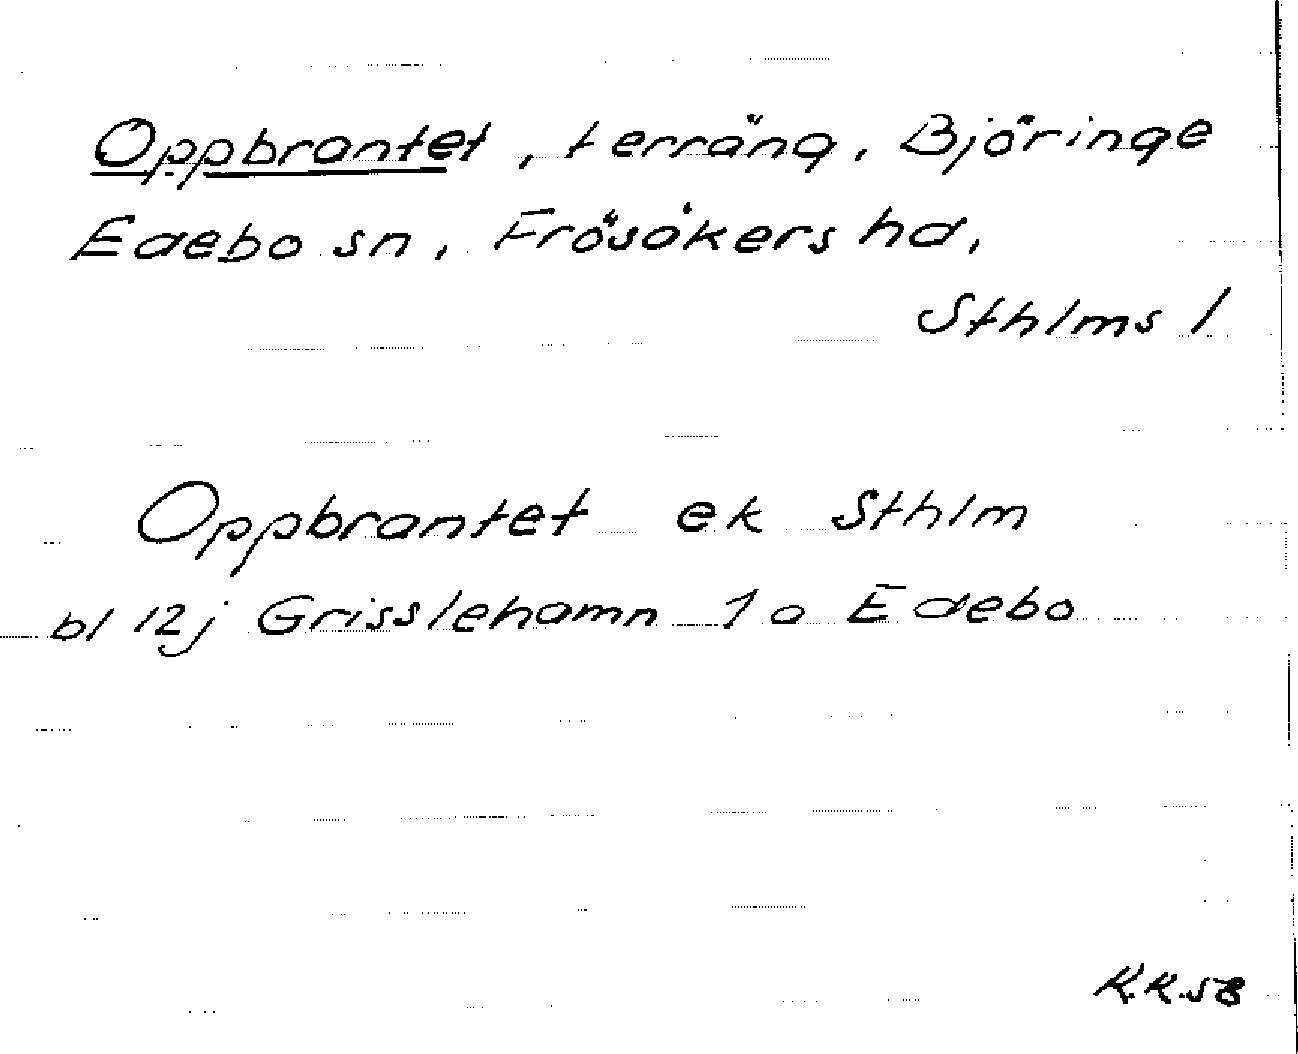 Oppbrantet, terräng, Björinge
Edebo sn, Frösåkers hd,
Sthlms l
Oppbrantet ek Sthlm
bl 12j Grisslehamn 1 o Edebo
K.K. 58